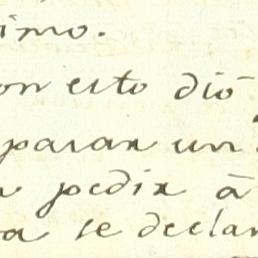 imo.
on esto dió
parar un
pedir á
a se declar